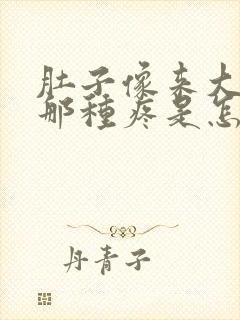 肚子像来大
那種疼是怎
丹青子